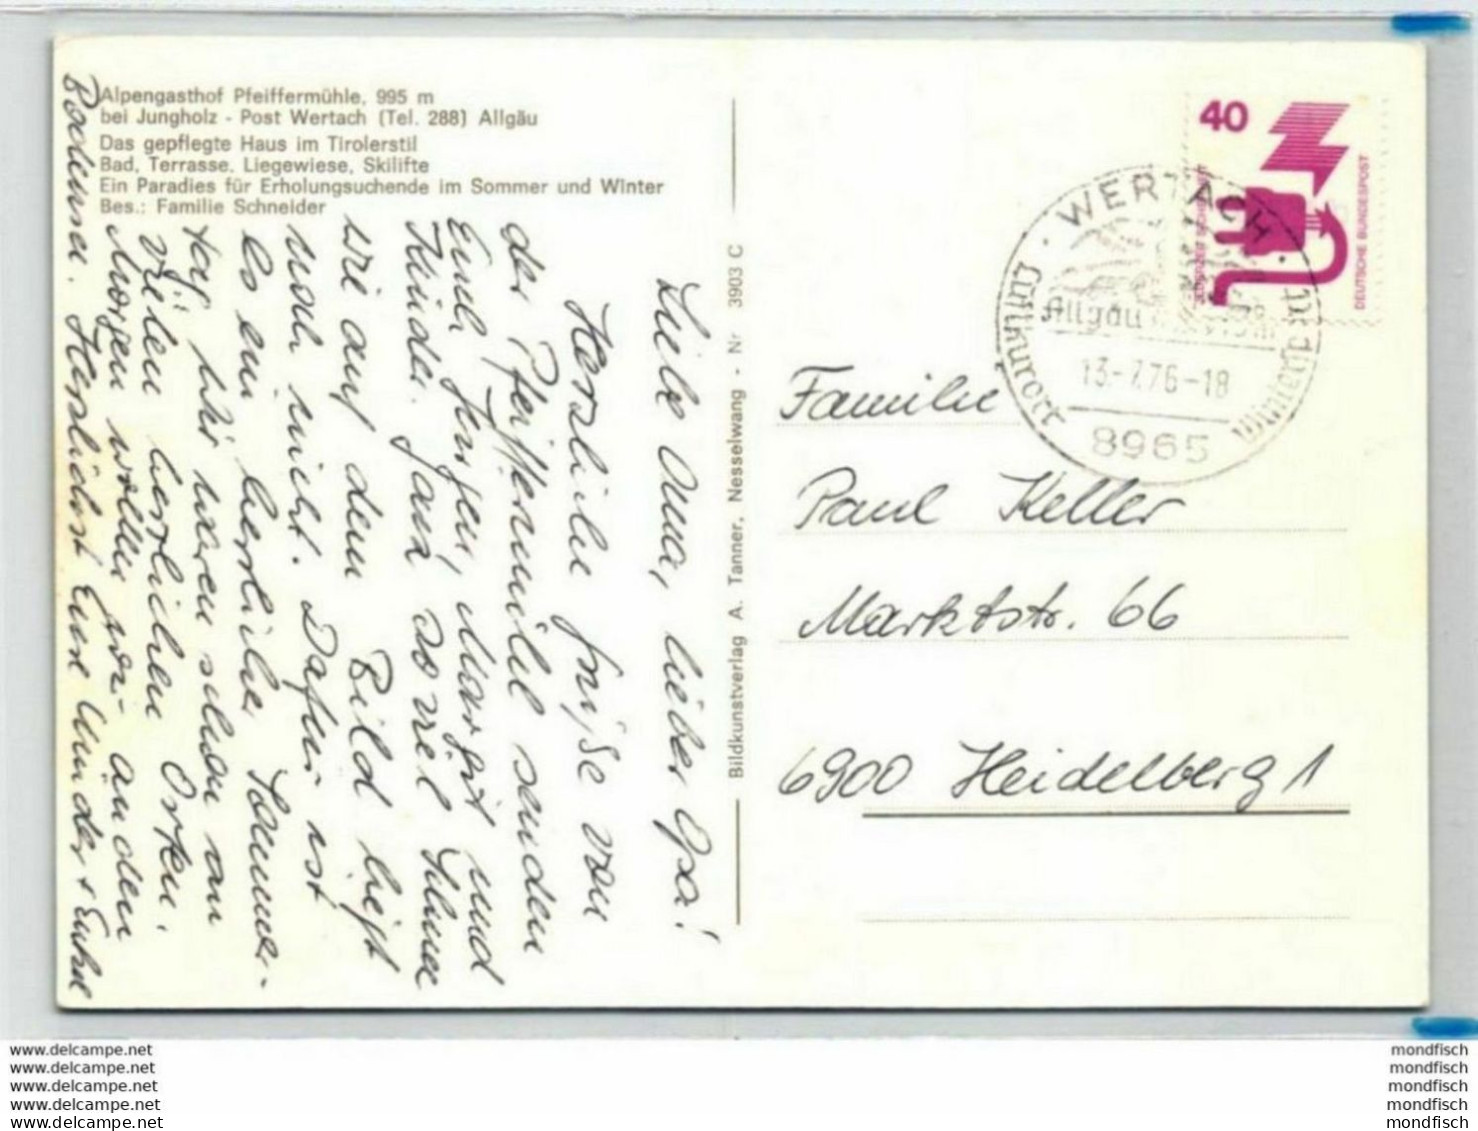 Alpengasthof Pfeiffermühle, 995 m
bei Jungholz - Post Wertach (Tel. 288) Allgäu
Das gepflegte Haus im Tirolerstil
Bad, Terrasse, Liegewiese, Skilifte
Ein Paradies für Erholungsuchende im Sommer und Winter
Bes.: Familie Schneider
Liebe Oma, lieber Opa!
Herzliche Grüße von
der Pfeiffermühle senden
Euch Jürgen, Margit und
Kinder. Ganz so viel Schnee
wie auf dem Bild liegt
noch nicht. Dafür ist
es ein herrlicher Sommer-
tag. Wir waren schon an
vielen herrlichen Orten.
Morgen wollen wir an den
Bodensee. Herzlichst Eure Kinder + Enkel
Bildkunstverlag A. Tanner, Nesselwang - Nr 3903 C
40
DEUTSCHE BUNDESPOST
WERTACH
Allgäu
13.-7.76-18
8965
Luftkurort
Wintersport
Familie
Paul Keller
Marktstr. 66
6900 Heidelberg 1
www.delcampe.net
www.delcampe.net
www.delcampe.net
www.delcampe.net
www.delcampe.net
mondfisch
mondfisch
mondfisch
mondfisch
mondfisch